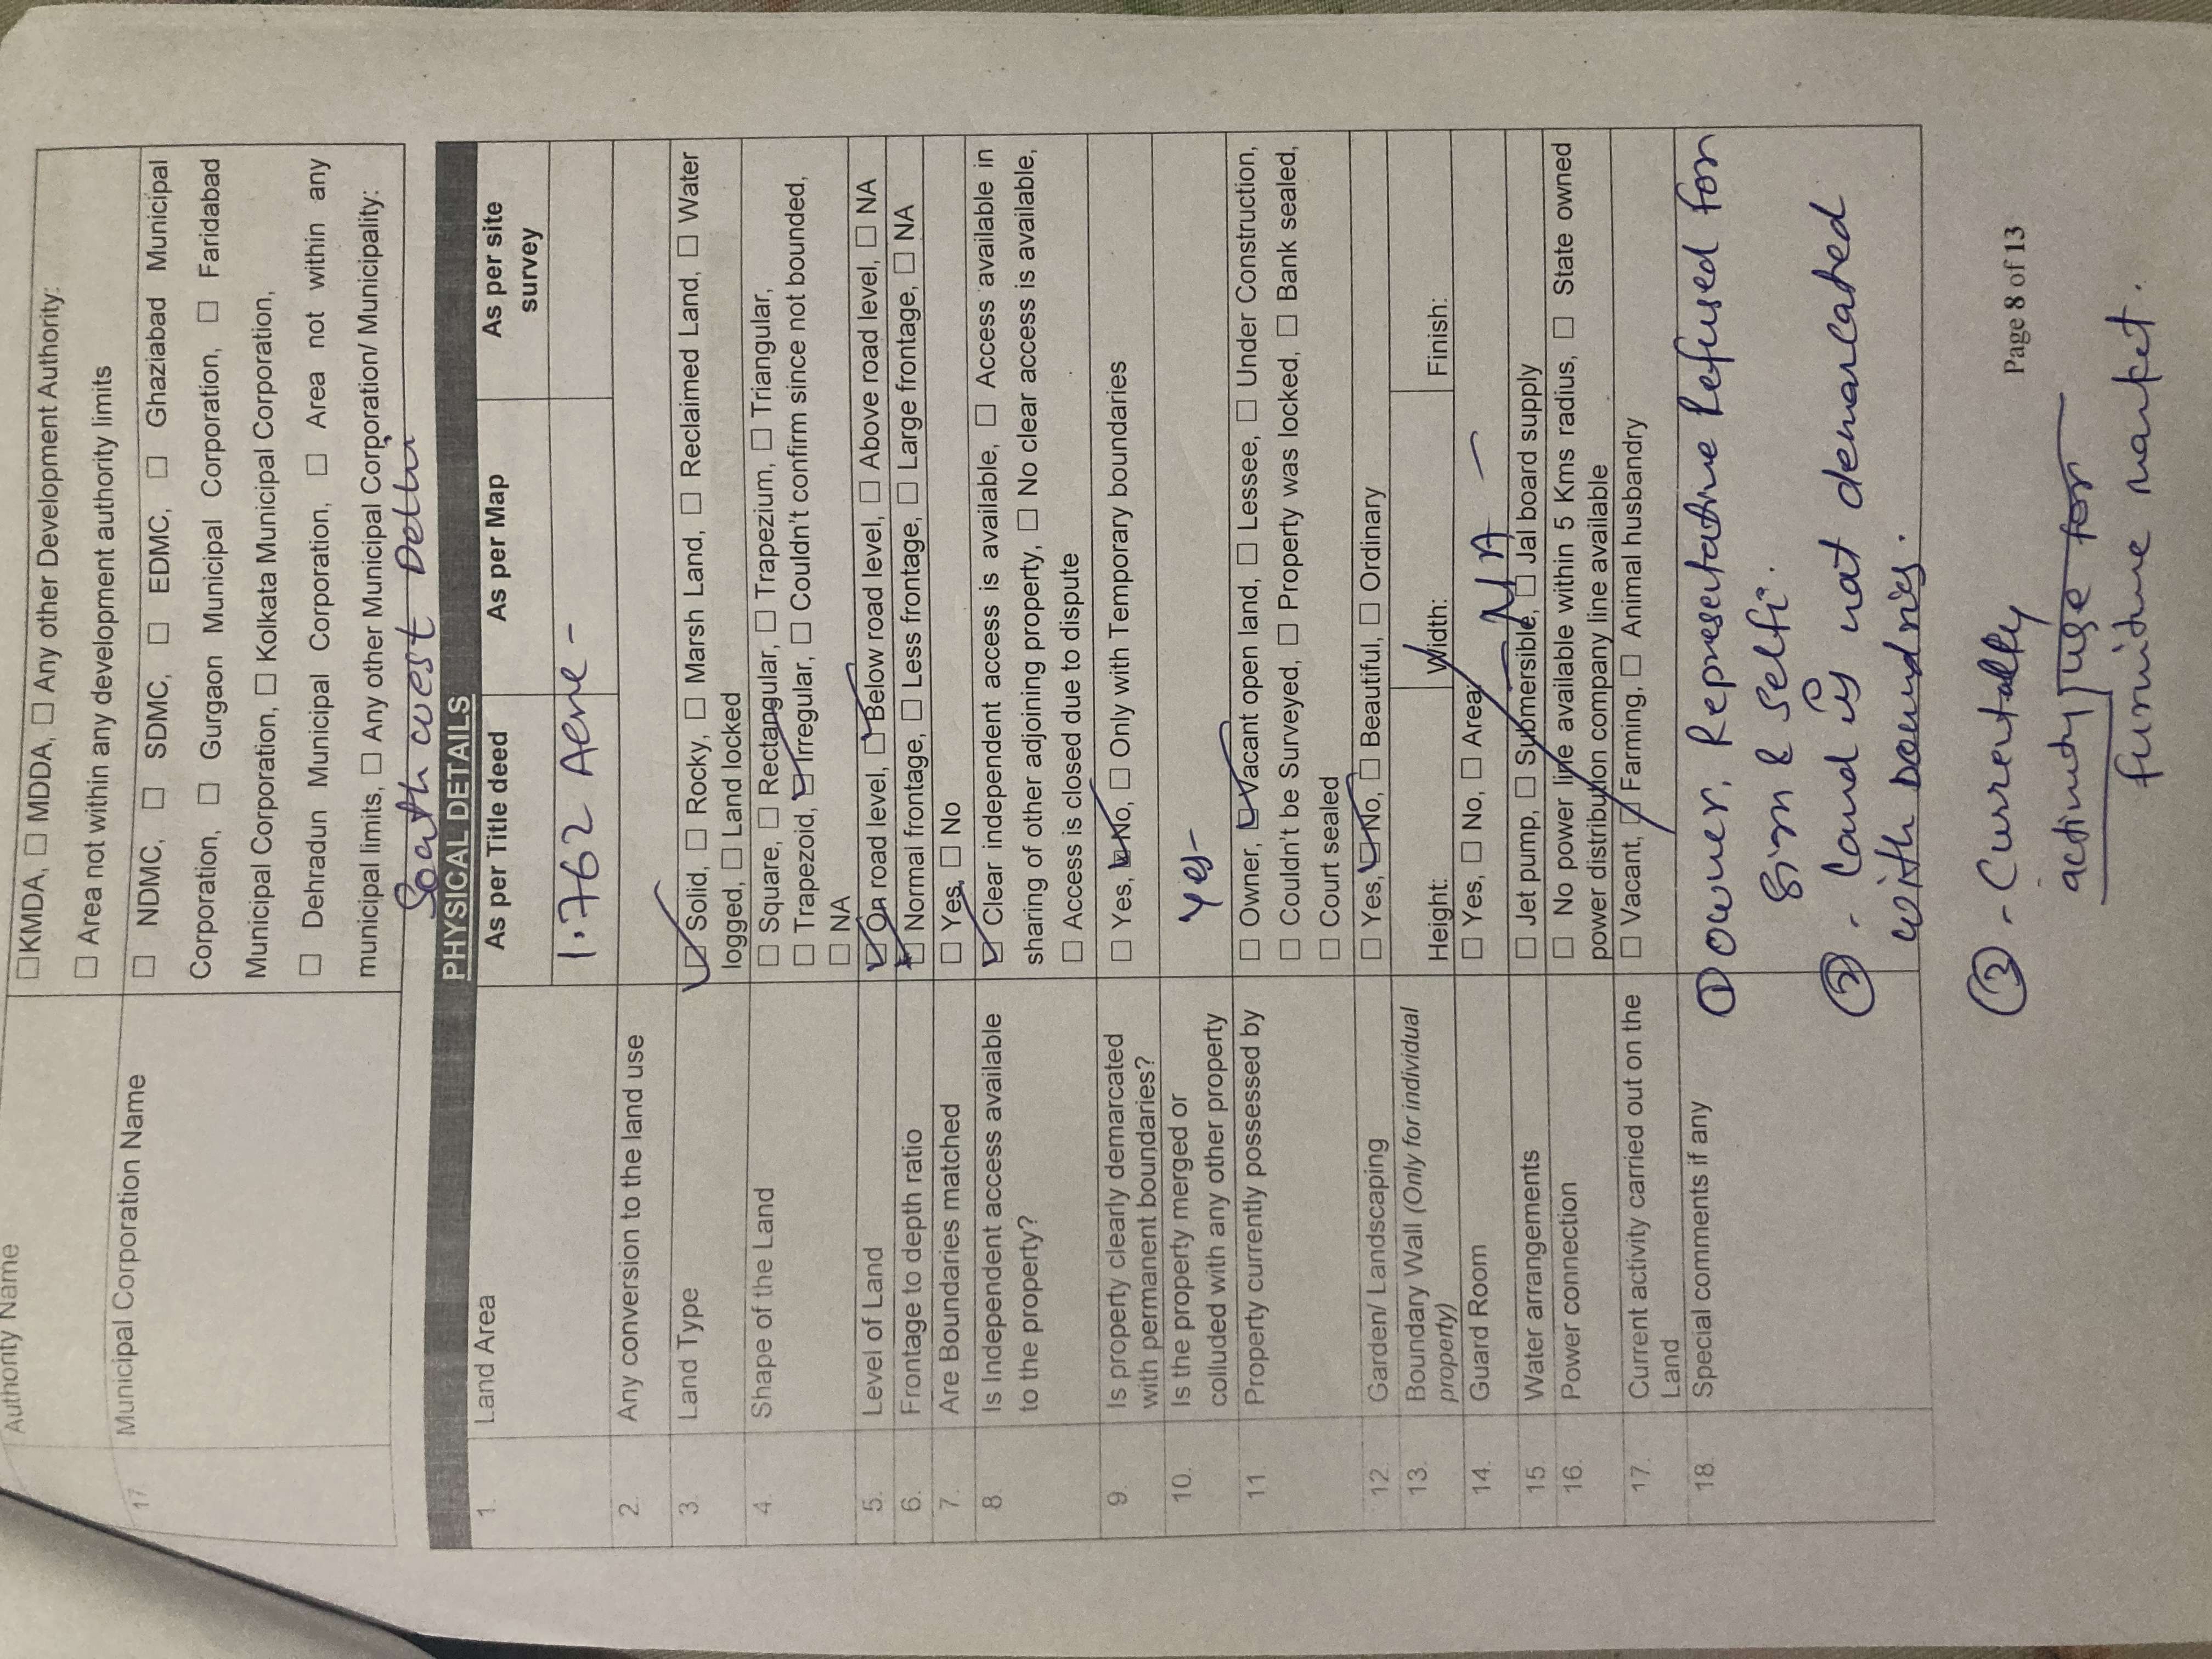 Authority Name
☐KMDA, ☐ MDDA, ☐ Any other Development Authority:
☐ Area not within any development authority limits
17. Municipal Corporation Name
☐ NDMC, ☐ SDMC, ☐ EDMC, ☐ Ghaziabad Municipal
Corporation, ☐ Gurgaon Municipal Corporation, ☐ Faridabad
Municipal Corporation, ☐ Kolkata Municipal Corporation,
☐ Dehradun Municipal Corporation, ☐ Area not within any
municipal limits, ☐ Any other Municipal Corporation/ Municipality:
South west Delhi
PHYSICAL DETAILS
1. Land Area
As per Title deed As per Map As per site
survey
1.762 Acre -
2. Any conversion to the land use
3. Land Type
☑ Solid, ☐ Rocky, ☐ Marsh Land, ☐ Reclaimed Land, ☐ Water
logged, ☐ Land locked
4. Shape of the Land
☐ Square, ☐ Rectangular, ☐ Trapezium, ☐ Triangular,
☐ Trapezoid, ☑ Irregular, ☐ Couldn't confirm since not bounded,
☐ NA
5. Level of Land
☑ On road level, ☑ Below road level, ☐ Above road level, ☐ NA
6. Frontage to depth ratio
☑ Normal frontage, ☐ Less frontage, ☐ Large frontage, ☐ NA
7. Are Boundaries matched
☐ Yes, ☐ No
8. Is Independent access available
to the property?
☑ Clear independent access is available, ☐ Access available in
sharing of other adjoining property, ☐ No clear access is available,
☐ Access is closed due to dispute
9. Is property clearly demarcated
with permanent boundaries?
☐ Yes, ☑ No, ☐ Only with Temporary boundaries
10. Is the property merged or
colluded with any other property
Yes-
11. Property currently possessed by
☐ Owner, ☑ Vacant open land, ☐ Lessee, ☐ Under Construction,
☐ Couldn't be Surveyed, ☐ Property was locked, ☐ Bank sealed,
☐ Court sealed
12. Garden/ Landscaping
☐ Yes, ☑ No, ☐ Beautiful, ☐ Ordinary
13. Boundary Wall (Only for individual
property)
Height: Width: Finish:
14. Guard Room
☐ Yes, ☐ No, ☐ Area:
- NA -
15. Water arrangements
☐ Jet pump, ☐ Submersible, ☐ Jal board supply
16. Power connection
☐ No power line available within 5 Kms radius, ☐ State owned
power distribution company line available
17. Current activity carried out on the
Land
☐ Vacant, ☐ Farming, ☐ Animal husbandry
18. Special comments if any
① owner, Representative Refused for
sign & selfi.
② - Land is not demarcated
with boundries.
Page 8 of 13
③ - Currentally
activity use for
furniture market.